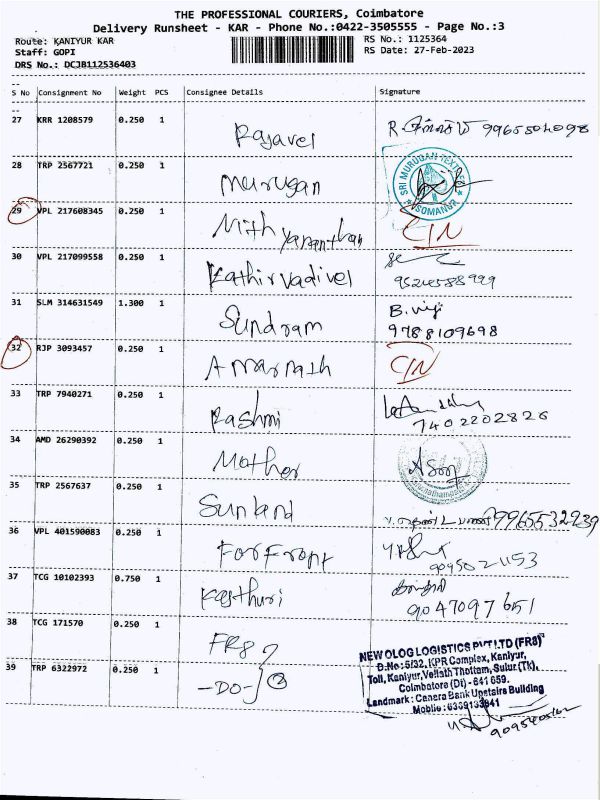 THE PROFESSIONAL COURIERS, Coimbatore
Delivery Runsheet - KAR - Phone No.:0422-3505555 - Page No.:3
Route: KANIYUR KAR
Staff: GOPI
DRS No.: DCJB112536403
RS No.: 1125364
RS Date: 27-Feb-2023
S No Consignment No Weight PCS Consignee Details Signature
27 KRR 1208579 0.250 1 Rajavel 9965504098
28 TRP 2567721 0.250 1 Murugan SRI MURUGAN TEXTILES SOMANUR
29 VPL 217608345 0.250 1 Mithyananthan CIN
30 VPL 217099558 0.250 1 Kathirvadivel 9524588999
31 SLM 314631549 1.300 1 Sundram B. viji
9788109698
32 RJP 3093457 0.250 1 Amarnath CIN
33 TRP 7940271 0.250 1 Rashmi
7402202826
34 AMD 26290392 0.250 1 Mather
35 TRP 2567637 0.250 1 Sunland 9965532939
36 VPL 401590083 0.250 1 ForFront
9095021153
37 TCG 10102393 0.750 1 Kasthuri
9047097651
38 TCG 171570 0.250 1 FR8
39 TRP 6322972 0.250 1 -DO- 2
NEWOLOG LOGISTICS PVT LTD (FR8)
D.No:5/32, KPR Complex, Kaniyur,
Toll, Kaniyur, Vellath Thottam, Sulur (Tk),
Coimbatore (Dt) - 641 659.
Landmark : Canara Bank Upstairs Building
Mobile : 6369133941